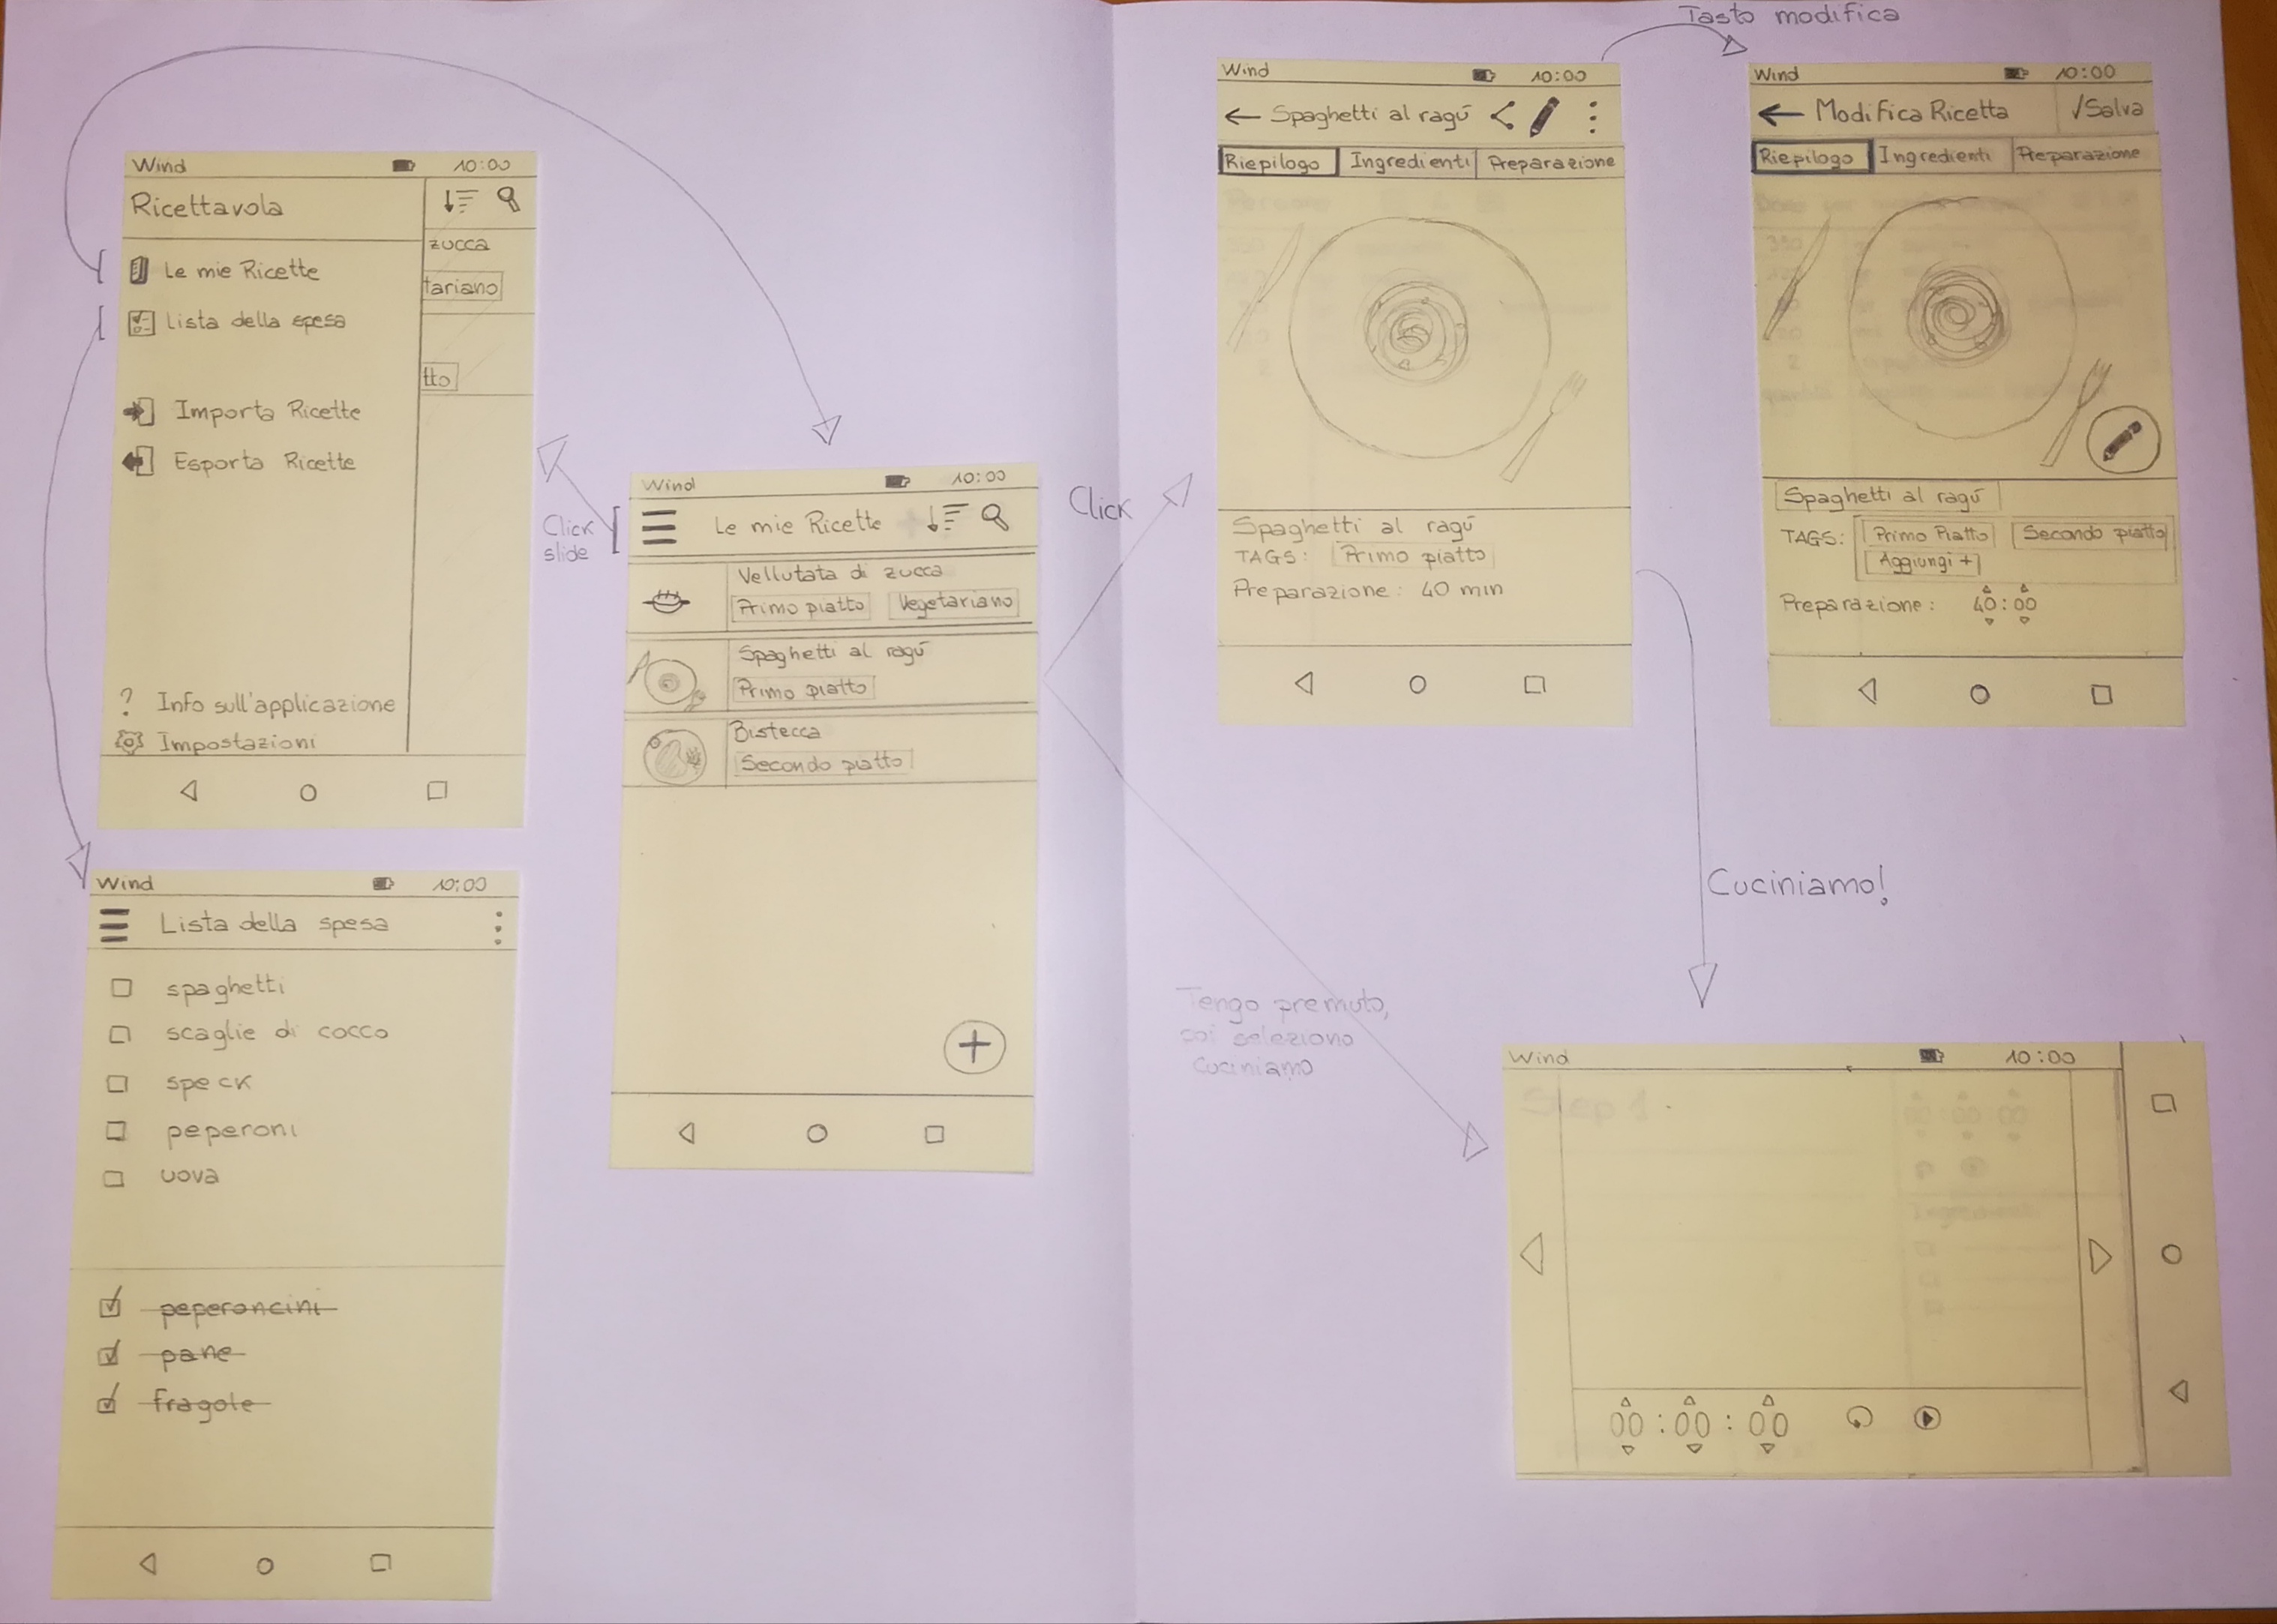 Tasto modifica
Wind 10:00
Ricettavola
zucca
Le mie Ricette
tariano
Lista della spesa
tto
Importa Ricette
Esporta Ricette
? Info sull'applicazione
Impostazioni
Click
slide
Wind 10:00
Lista della spesa
spaghetti
scaglie di cocco
speck
peperoni
uova
peperoncini
pane
fragole
Wind 10:00
Le mie Ricette
Vellutata di zucca
Primo piatto Vegetariano
Spaghetti al ragú
Primo piatto
Bistecca
Secondo piatto
+
Click
Tengo premuto,
poi seleziono
cuciniamo
Wind 10:00
Spaghetti al ragú
Riepilogo Ingredienti Preparazione
Spaghetti al ragú
TAGS: Primo piatto
Preparazione: 40 min
Wind 10:00
Modifica Ricetta √Salva
Riepilogo Ingredienti Preparazione
Spaghetti al ragú
TAGS: Primo Piatto Secondo piatto
Aggiungi +
Preparazione: 40:00
Cuciniamo!
Wind 10:00
Step 1
Ingredienti
00:00:00